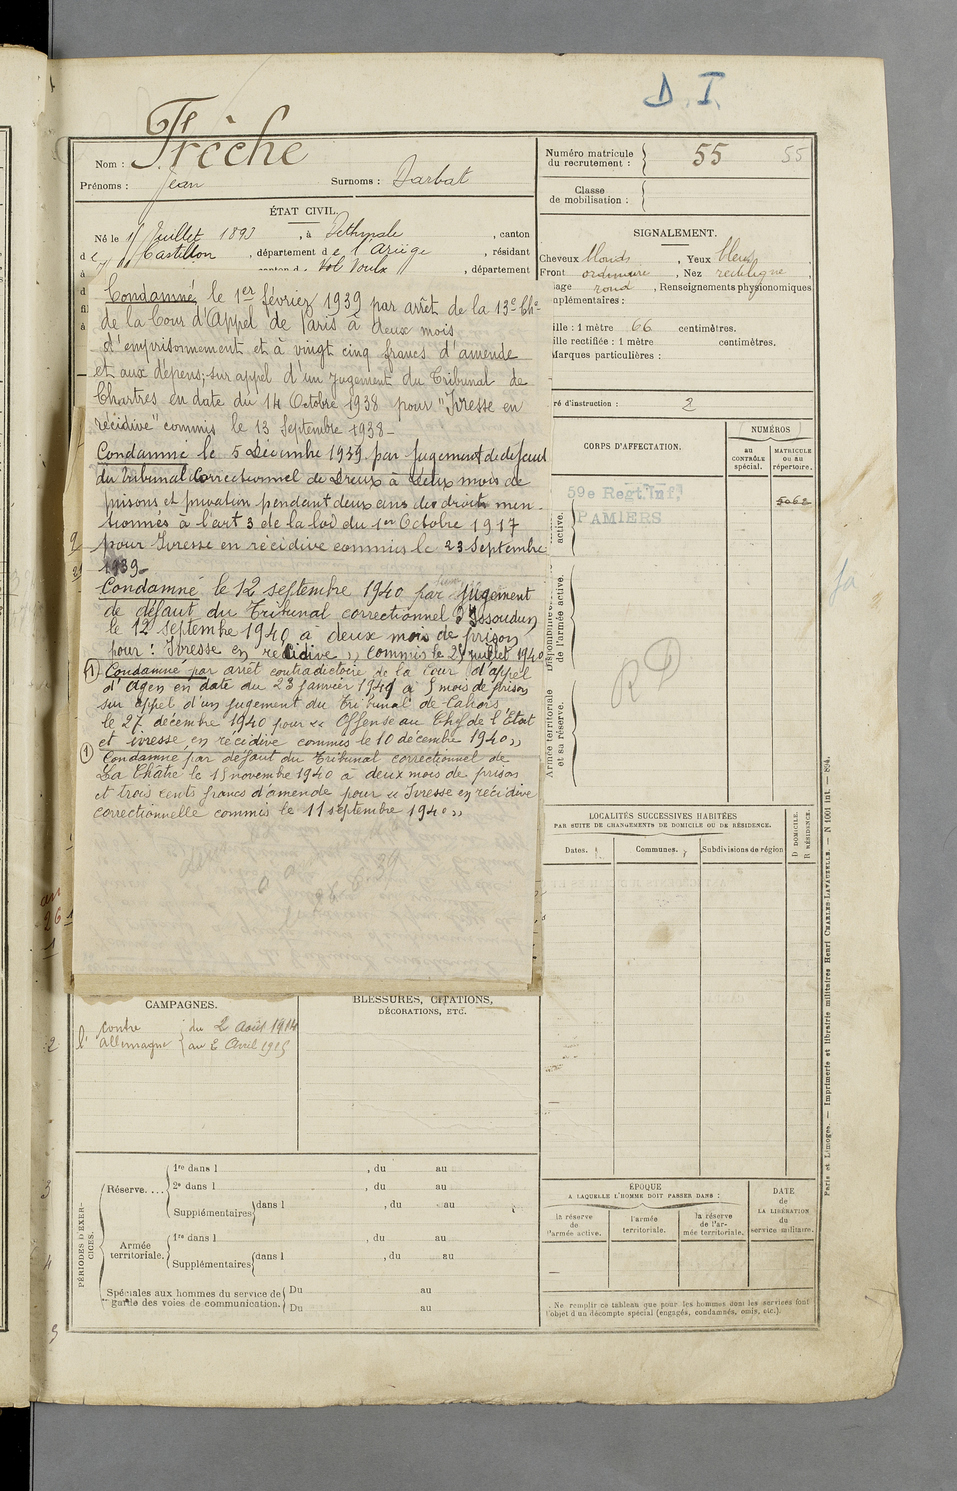 D. I.
Nom : Frèche
Prénoms : Jean Surnoms : Barbat
Numéro matricule du recrutement : 55 55
Classe de mobilisation :
ÉTAT CIVIL.
Né le 1 Juillet 1893, à , canton
d Castillon, département de l'Ariège, résidant
à canton d , département
d
fil
à
SIGNALEMENT.
Cheveux blonds, Yeux bleus
Front ordinaire, Nez rectiligne,
sage rond, Renseignements physionomiques
mplémentaires :
ille : 1 mètre 66 centimètres.
ille rectifiée : 1 mètre centimètres.
Marques particulières :
ré d'instruction : 2
Condamné le 1er février 1939 par arrêt de la 13e Che
de la Cour d'Appel de Paris à deux mois
d'emprisonnement et à vingt cinq francs d'amende
et aux dépens; sur appel d'un jugement du Tribunal de
Chartres en date du 14 Octobre 1938 pour "Ivresse en
récidive" commis le 13 Septembre 1938 –
Condamné le 5 Décembre 1939 par Jugement de défaut
du Tribunal Correctionnel de Dreux à deux mois de
prisons et privation pendant deux ans des droits men-
tionnés à l'art 3 de la loi du 1er Octobre 1917
pour Ivresse en récidive commis le 23 Septembre
1939 –
Condamné le 12 septembre 1940 par jugement
de défaut du Tribunal correctionnel d'Issoudun
le 12 septembre 1940 à deux mois de prison
pour : Ivresse en récidive » commis le 25 juillet 1940
(1) Condamné par arrêt contradictoire de la Cour d'appel
d'Agen en date du 23 janvier 1941 à 5 mois de prison
sur appel d'un jugement du Tribunal de Cahors
le 27 décembre 1940 pour « Offense au Chef de l'Etat
et ivresse en récidive commis le 10 décembre 1940 »
(1) Condamné par défaut du Tribunal correctionnel de
La Châtre le 15 novembre 1940 à deux mois de prison
et trois cents francs d'amende pour « Ivresse en récidive
correctionnelle commis le 11 septembre 1940 »
CORPS D'AFFECTATION.
NUMÉROS
au CONTRÔLE spécial.
MATRICULE ou au répertoire.
59e Regt. Inf,
PAMIERS
5062
active.
Disponibilité
de l'armée active.
Armée territoriale
et sa réserve.
RD
LOCALITÉS SUCCESSIVES HABITÉES
PAR SUITE DE CHANGEMENTS DE DOMICILE OU DE RÉSIDENCE.
Dates. Communes. Subdivisions de région
D DOMICILE.
R RÉSIDENCE.
CAMPAGNES.
contre
l'Allemagne
du 2 Août 1914
au 2 Avril 1915
BLESSURES, CITATIONS,
DÉCORATIONS, ETC.
PÉRIODES D'EXERCICES.
Réserve....
1re dans l , du au
2e dans l , du au
Supplémentaires dans l , du au
Armée territoriale.
1re dans l , du au
Supplémentaires dans l , du au
Spéciales aux hommes du service de garde des voies de communication.
Du au
Du au
ÉPOQUE
A LAQUELLE L'HOMME DOIT PASSER DANS :
la réserve de l'armée active.
l'armée territoriale.
la réserve de l'armée territoriale.
DATE
de
LA LIBÉRATION
du
service militaire.
. Ne remplir ce tableau que pour les hommes dont les services font
l'objet d'un décompte spécial (engagés, condamnés, omis, etc.).
Paris et Limoges. — Imprimerie et librairie militaires Henri CHARLES-LAVAUZELLE. — N 1001 int. — 894.